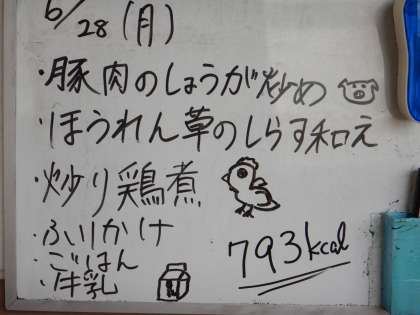 6/28(月)
・豚肉のしょうが炒め
・ほうれん草のしらす和え
・炒り鶏煮
・ふりかけ
・ごはん
・牛乳
793kcal